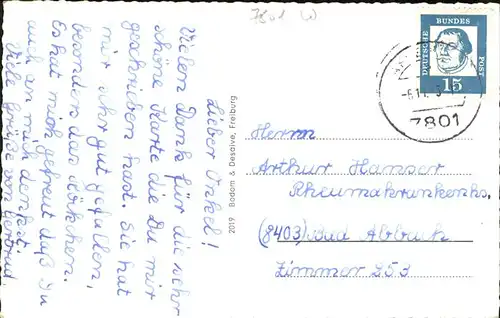 7801
Lieber Onkel!
Vielen Dank für die sehr
schöne Karte die Du mir
geschrieben hast. Sie hat
mir sehr gut gefallen,
besonders das Kätzchen.
Es hat mich gefreut daß Du
auch an mich denkst.
Viele Grüße von Gertrud
2019 Bodom & Desaive, Freiburg
DEUTSCHE
BUNDES
POST
15
7801
Herrn
Arthur Hanser
Rheumakrankenhs.
(8403) Bad Abbach
Zimmer 253